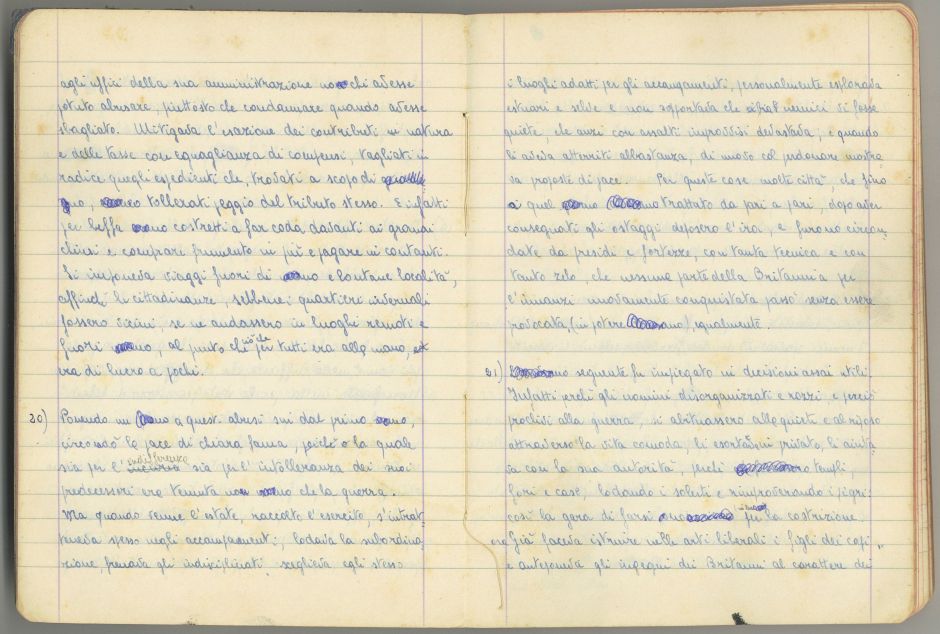 agli uffici della sua amministrazione chi avesse
potuto abusare, piuttosto che condannare quando avesse
sbagliato. Mitigava l'esazione dei contributi in natura
e delle tasse con eguaglianza di compensi, tagliati in
radice quegli espedienti che, trovati a scopo di
tollerati peggio del tributo stesso. E infatti
per beffa costretti a far coda davanti ai granai
chiusi e comprare frumento in più e pagare in contanti.
Si imponeva viaggi fuori di mano e lontane località,
affinché le cittadinanze, sebbene i quartieri invernali
fossero vicini, se ne andassero in luoghi remoti e
fuori mano, al punto che ciò che per tutti era alla mano,
era di lucro a pochi.
20) Ponendo un a questi abusi sin dal primo anno,
circondò la pace di chiara fama, poiché la quale
sia per l'indifferenza sia per l'intolleranza dei suoi
predecessori era temuta non che la guerra.
Ma quando venne l'estate, raccolto l'esercito, s'intrat
teneva spesso negli accampamenti, lodava la subordina
zione, frenava gli indisciplinati sceglieva egli stesso
i luoghi adatti per gli accampamenti, personalmente esplorava
estuari e selve e non sopportava che nemici vi fosse
quiete, che anzi con assalti improvvisi devastava, e quando
li aveva atterriti abbastanza, di nuovo col perdonare mostra
va proposte di pace. Per queste cose molte città, che fino
a quel trattato da pari a pari, dopo aver
consegnati gli ostaggi deposero l'ira, e furono circon
date da presidi e fortezze, con tanta tecnica e con
tanto zelo, che nessuna parte della Britannia per
l'innanzi nuovamente conquistata passò senza essere
provocata, (in potere ) egualmente.
21) seguente fu impiegato in decisioni assai utili.
Infatti perché gli uomini disorganizzati e rozzi e perciò
proclivi alla guerra, si abituassero alla quiete e al riposo
attraverso la vita comoda, li esortava in privato, li aiuta
va con la sua autorità, perché templi,
fori e case, lodando i solerti e rimproverando i pigri:
così la gara di farsi la costrizione.
Già faceva istruire nelle arti liberali i figli dei capi
e anteponeva gli ingegni dei Britanni al carattere dei